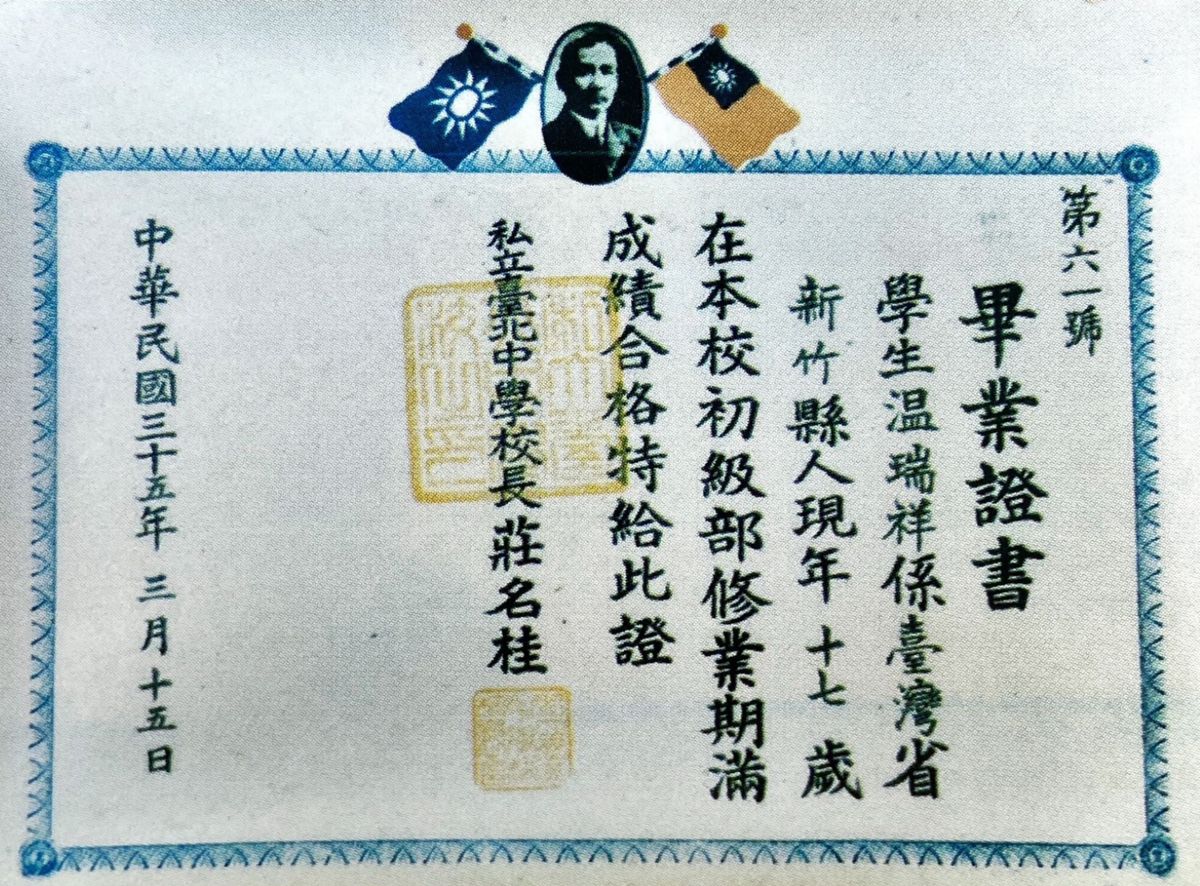 第六一號
畢業證書
學生温瑞祥係臺灣省
新竹縣人現年十七歲
在本校初級部修業期滿
成績合格特給此證
私立臺北中學校長莊名桂
中華民國三十五年三月十五日